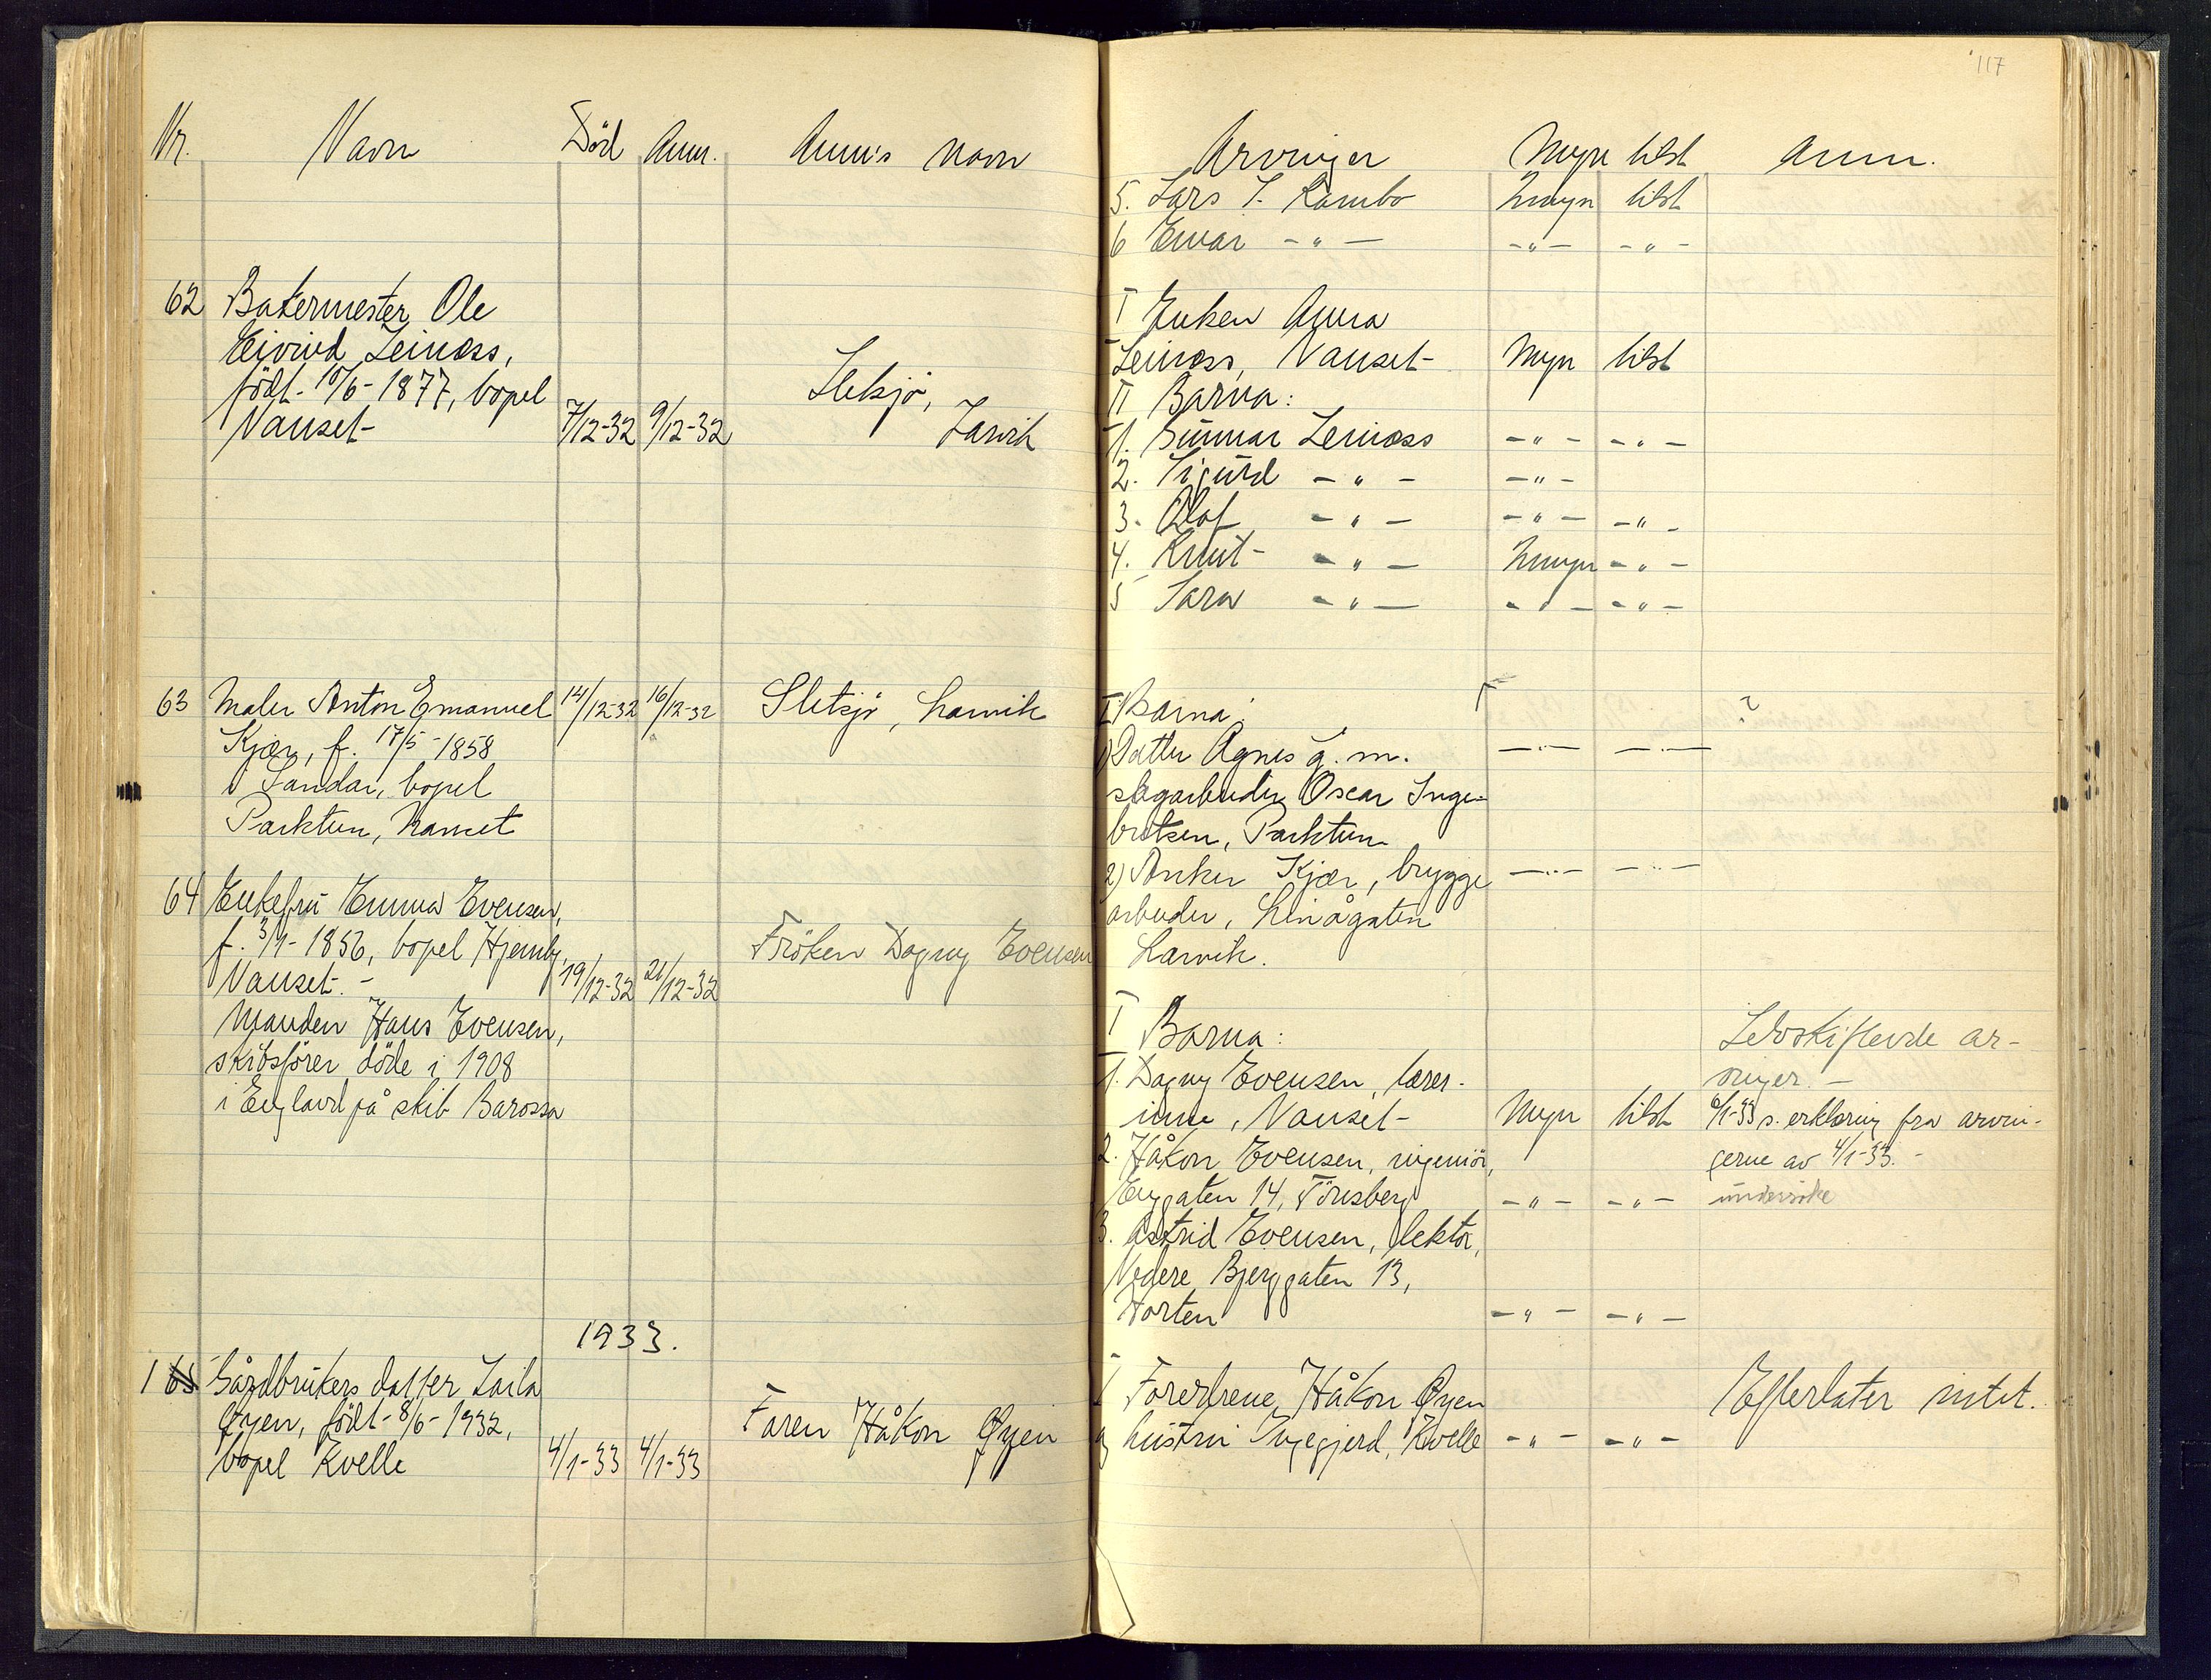 Nr. Navn Död Anm. Anm's navn
62 Bakermester Ole
Eivind Leinæss,
födt 10/6-1877, bopel
Nanset 7/12-32 9/12-32 Sletsjö,
Larvik
63 Maler Anton Emanuel 14/12-32 16/12-32 Sletsjö, Larvik
Kjær, f. 17/5-1858
i Sandar, bopel
Parktun, Nanset
64 Enkefru Emma Evensen,
f. 3/1-1856, bopel Hjemly, Fröken Dagny Evensen
Nanset.- 19/12-32 21/12-32
Manden Hans Evensen,
skibsförer döde i 1908
i England på skib Barossa
1933.
1 65 Gårdbrukers datter Laila
Øyen, födt 8/6-1932, Faren Håkon Øyen
bopel Kvelle 4/1-33 4/1-33
117
Arvinger Myn tilst anm.
5. Lars S. Rambo Umyn tilst
6 Einar -"- -"- -"-
I Enken Anna
Leinæss, Nanset Myn tilst
II Barna:
1. Gunnar Leinæss -"- -"-
2. Sigurd -"- -"-
3. Olaf -"- -"- -"-
4. Knut -"- Umyn -"-
5 Sara -"- -"- -"-
I Barna: ?
1) Datter Agnes g. m. -"- -"-
Oscar Inge-
bretsen, Parktun
2) Anker Kjær, brygge -"- -"-
arbeider,
Larvik.
I Barna: Selvskiftende ar-
vinger.-
1. Dagny Evensen, lærer-
inne, Nanset Myn tilst 6/1-33 s. erklæring fra arvin-
2. Håkon Evensen, ingeniör, gerne av 4/1-33.-
Enggaten 14, Tönsberg -"- -"- undersöke
3. Astrid Evensen, lektor,
Nedre Bjerggaten 13,
Horten -"- -"-
I Foreldrene, Håkon Øyen Efterlater intet.
og hustru Ingegjerd, Kvelle -"- -"-